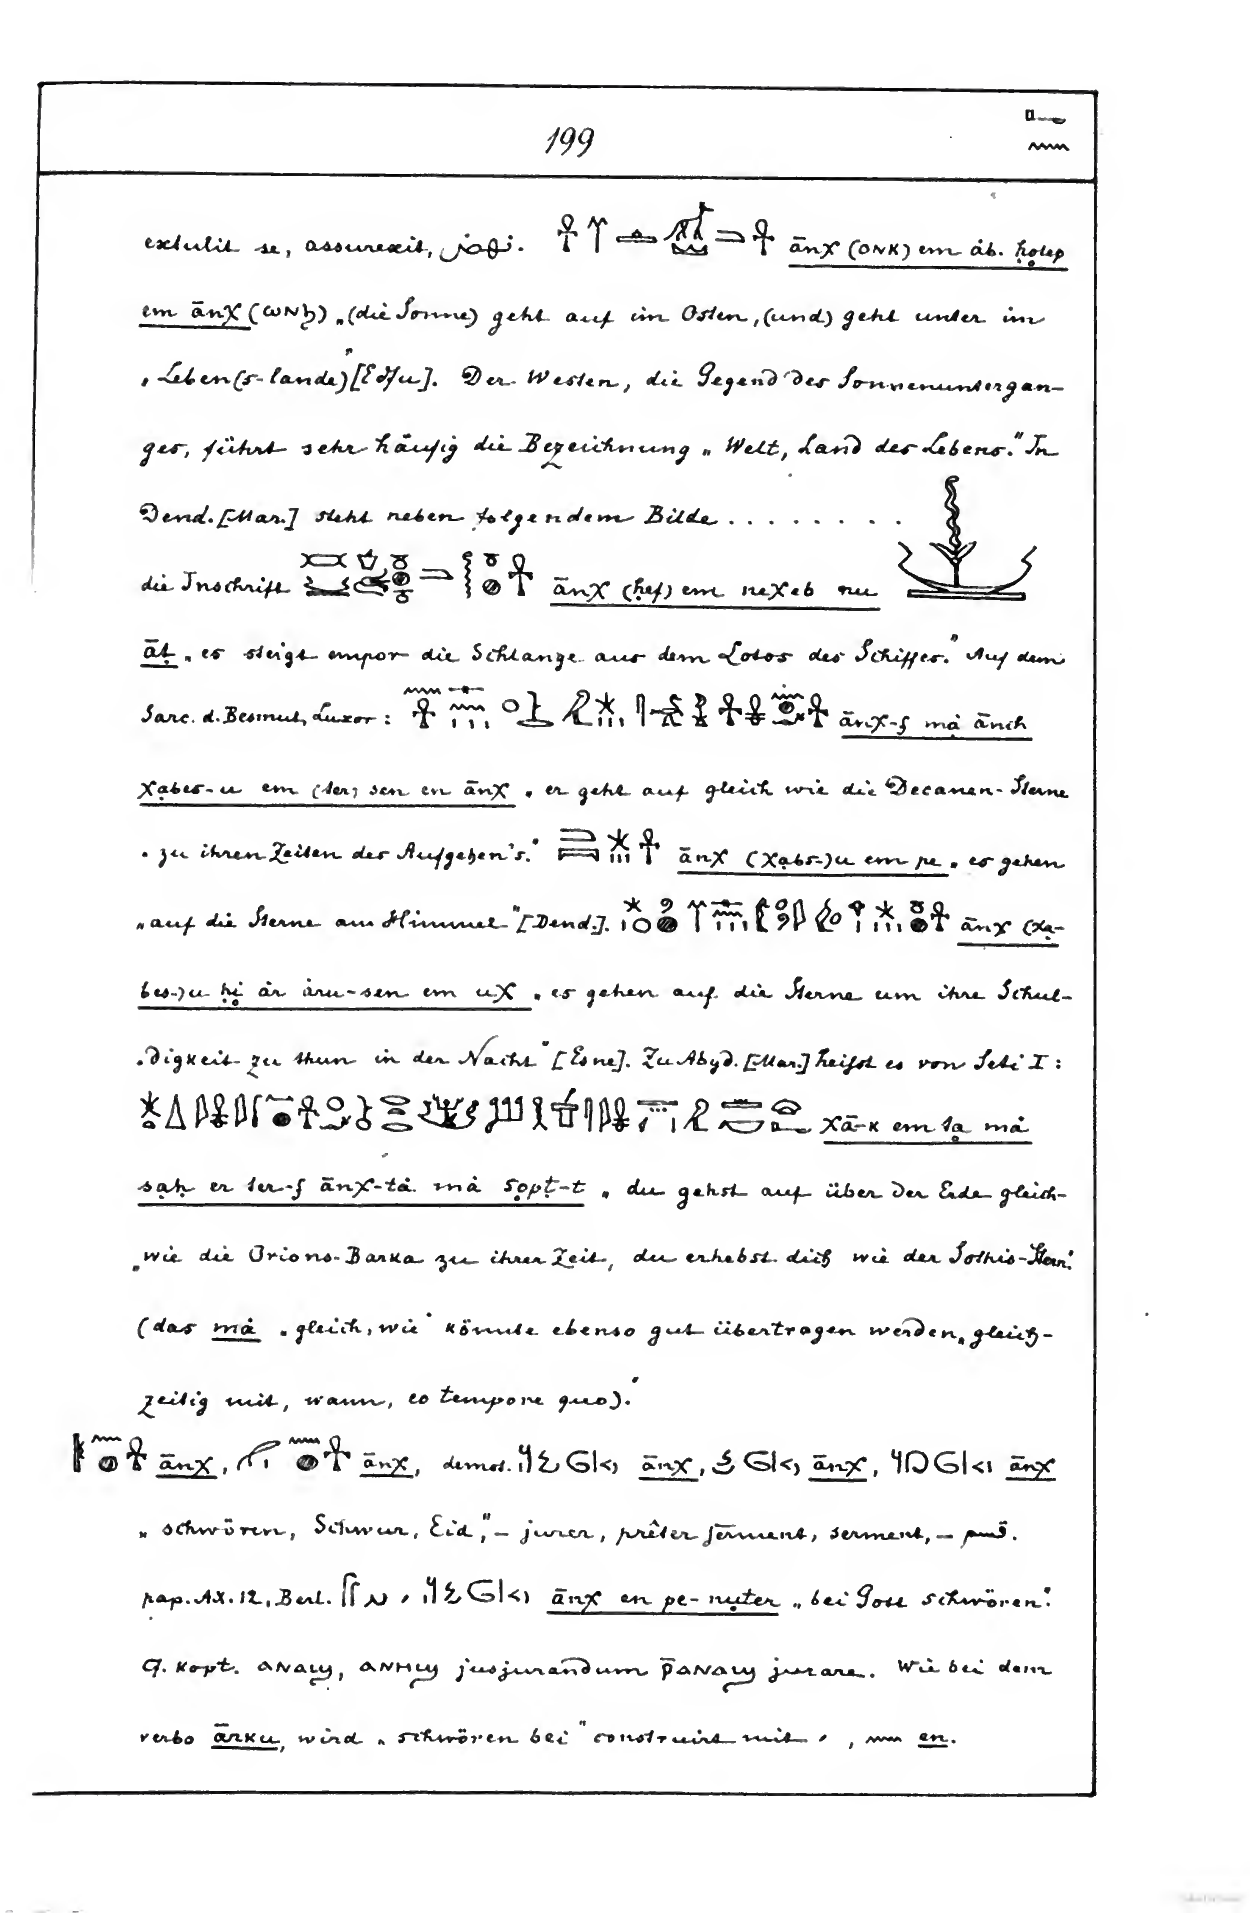 199
extulit se, assurexit, ānχ (ONK) em àb. ḥotep
em ānχ (ⲱⲛϩ) „(die Sonne) geht auf im Osten, (und) geht unter im
„Leben(s-lande)“ [Edfu]. Der Westen, die Gegend des Sonnenuntergan-
ges, führt sehr häufig die Bezeichnung „Welt, Land des Lebens.“ In
Dend. [Mar.] steht neben folgendem Bilde . . . . . . . . .
die Inschrift ānχ (ḥef) em neχeb nu
āṭ „es steigt empor die Schlange aus dem Lotos des Schiffes.“ Auf dem
Sarc. d. Besmut, Luxor: ānχ-f mà ānch
χabes-u em (ter) sen en ānχ „er geht auf gleich wie die Decanen-Sterne
„zu ihren Zeiten des Aufgehen's.“ ānχ (χabs-)u em pe „es gehen
„auf die Sterne am Himmel“ [Dend.]. ānχ (χa-
bes-)u ḥi àr àru-sen em uχ „es gehen auf die Sterne um ihre Schul-
„digkeit zu thun in der Nacht“ [Esne]. Zu Abyd. [Mar.] heißt es von Seti I:
χā-k em ta mà
saḥ er ter-f ānχ-tà mà sopṭ-t „du gehst auf über der Erde gleich-
„wie die Orions-Barka zu ihrer Zeit, du erhebst dich wie der Sothis-Stern“.
(das mà „gleich, wie“ könnte ebenso gut übertragen werden „gleich-
zeitig mit, wann, eo tempore quo).“
ānχ, ānχ, demot. ānχ, ānχ, ānχ
„schwören, Schwur, Eid,“ – jurer, prêter serment, serment, –
pap. AX. 12, Berl. ānχ en pe-nuter „bei Gott schwören“.
Cf. kopt. ⲁⲛⲁϣ, ⲁⲛⲏϣ jusjurandum ⲣ̄ⲁⲛⲁϣ jurare. Wie bei dem
verbo ārku, wird „schwören bei“ construirt mit , en.